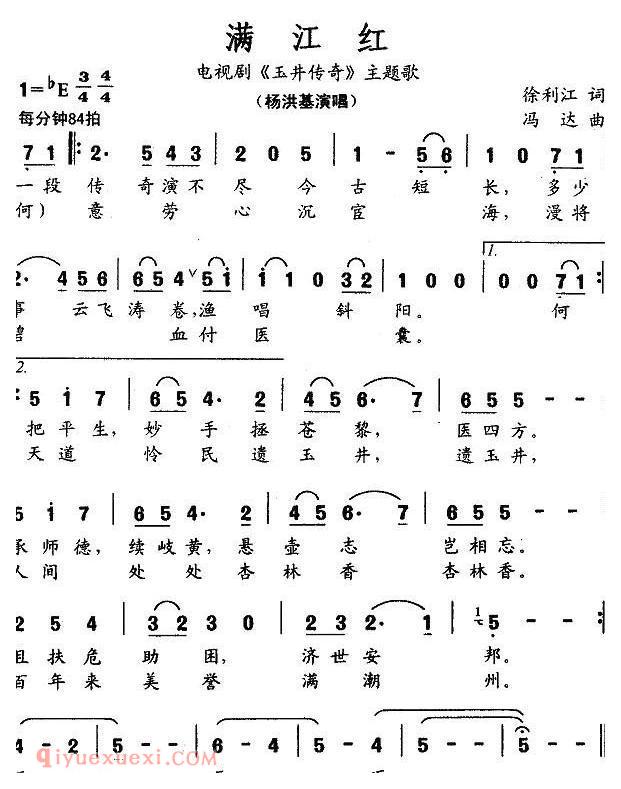 满江红
电视剧《玉井传奇》主题歌
1=♭E 3/4 4/4
(杨洪基演唱)
徐利江 词
每分钟84拍
冯达 曲
7 1 ‖: 2· 5 4 3 | 2 0 5 | 1 - - 5 6 | 1 0 7 1
一段 传 奇演不 尽 今 古 短 长, 多少
何) 意 劳 心 沉 宦 海, 漫将
1.
2· 4 5 6 | 6 5 4 ∨ 5 i | i 1 0 3 2 | 1 0 0 | 0 0 7 1 :‖
事 云飞 涛 卷,渔 唱 斜 阳。 何
血付 医 囊。
2.
5 i 7 | 6 5 4· 2 | 4 5 6· 7 | 6 5 5 - -
把平生, 妙手拯苍黎, 医四方。
天道 怜民遗玉井, 遗玉井,
5 i 7 | 6 5 4 2· | 2 4 5 6· 7 | 5 - -
承师德, 续岐黄,悬壶志 岂相忘。
人间 处处杏林香 杏林香。
2 5 4 | 3 2 3 0 | 2 3 2· 1 | 1 5 - - :‖
且扶危助困, 济世安 邦。
百年来美誉 满潮 州。
4 - 2 | 5 - - | 5 - - | 5 - - | 5 - -
qiyuexuexi.com